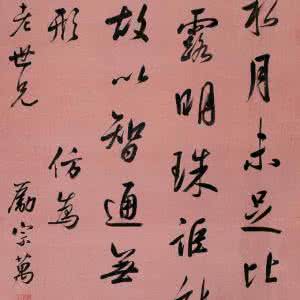 水月未足比
露明珠詎能
故以智通無
形 仿為
老世兄 勵宗萬